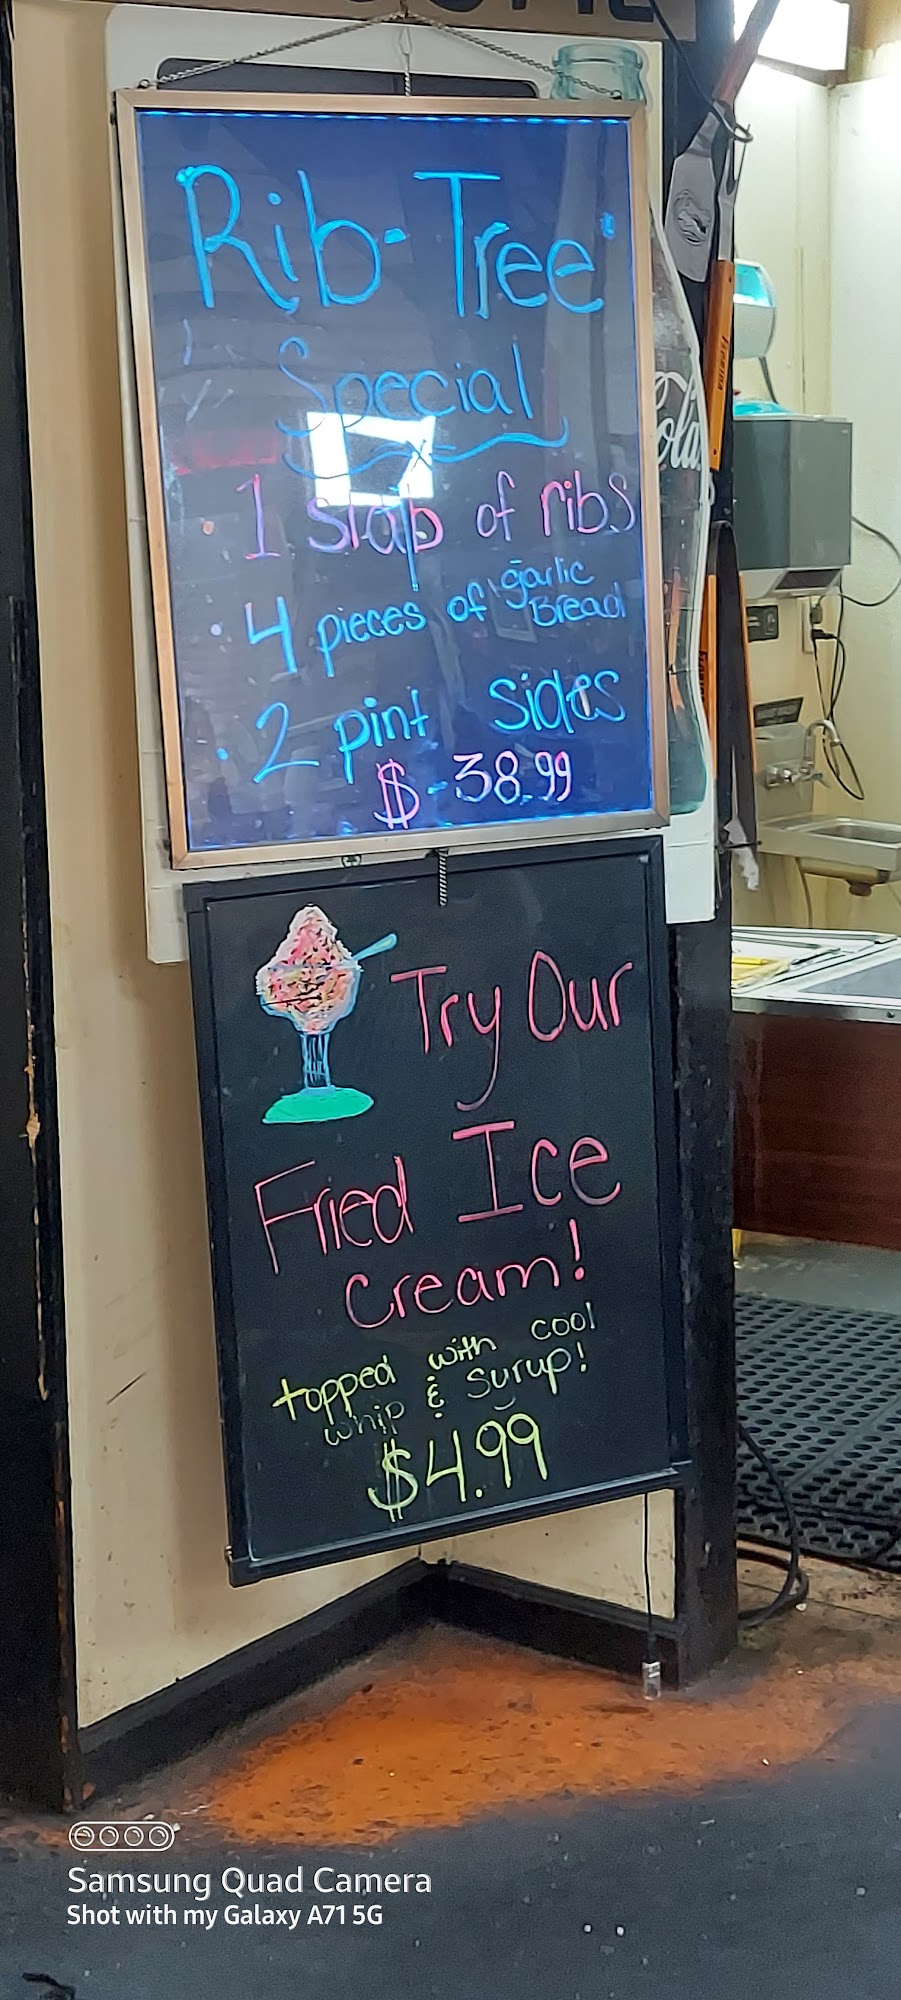 Rib-Tree
Special
· 1 slab of ribs
· 4 pieces of garlic
Bread
· 2 pint sides
$-38.99
Cola
Try Our
Fried Ice
cream!
topped with cool
whip & syrup!
$4.99
Samsung Quad Camera
Shot with my Galaxy A71 5G